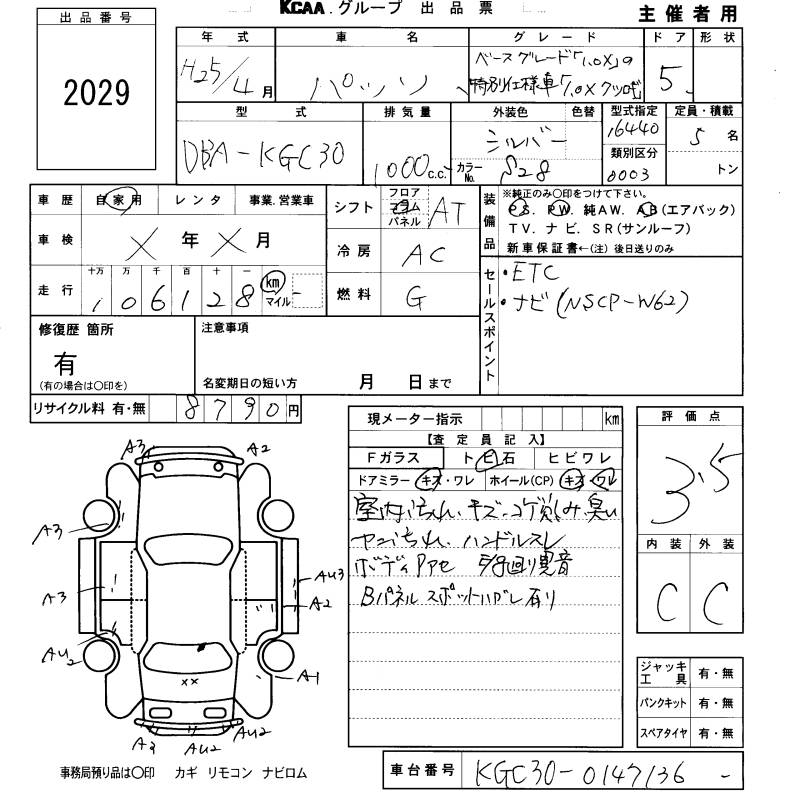 KCAA.グループ 出品票
主催者用
出品番号
2029
年式 車名 グレード ドア 形状
H25/4月 パッソ ベースグレード「1.0X」の
特別仕様車「1.0X クツロギ」 5
型式 排気量 外装色 色替 型式指定 定員・積載
DBA-KGC30 1000 c.c. シルバー 16440 5名
カラーNo. S28 類別区分 0003 トン
車歴 自家用 レンタ 事業.営業車
シフト フロア コラム パネル AT
装備品 ※純正のみ〇印をつけて下さい。
PS. PW. 純AW. AB(エアバック)
TV. ナビ. SR(サンルーフ)
新車保証書←(注)後日送りのみ
車検 X年X月
冷房 AC
走行 十万 万 千 百 十 一
106128 km マイル -
燃料 G
セールスポイント
・ETC
・ナビ(NSCP-W62)
修復歴 箇所
有
(有の場合は〇印を)
注意事項
名変期日の短い方 月 日まで
リサイクル料 有・無 8790円
現メーター指示 km
【査定員記入】
Fガラス トビ石 ヒビワレ
ドアミラー キズ・ワレ ホイール(CP) キズ・ワレ
室内汚れ、キズ、コゲ、臭い
ヤニ汚れ、ハンドルスレ
ボディ
Bパネルスポットハガレ有り
評価点
3.5
内装 外装
C C
A3 A2
A3
A3 AU3
A2
AU2
A1
××
A3 AU2 AU2
ジャッキ工具 有・無
パンクキット 有・無
スペアタイヤ 有・無
事務局預り品は〇印 カギ リモコン ナビロム
車台番号 KGC30-0147136 -